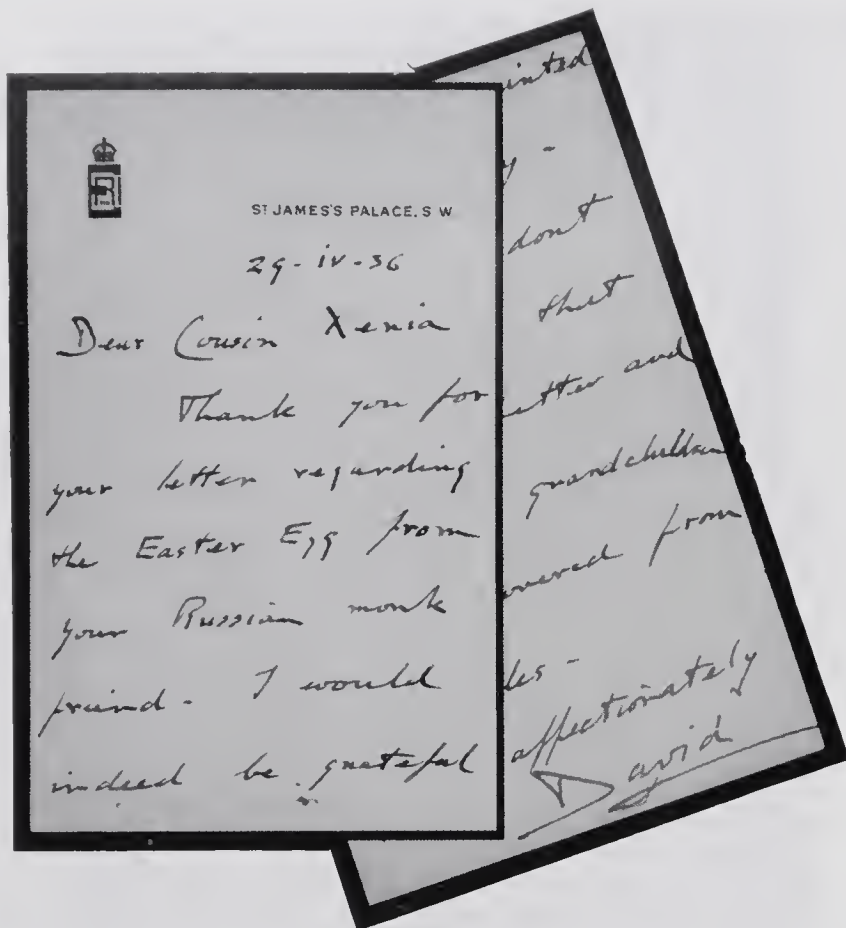 ST JAMES'S PALACE. S W
29-iv-36
Dear Cousin Xenia
Thank you for
your letter regarding
the Easter Egg from
your Russian monk
friend - I would
indeed be grateful
inted
y -
dont
that
etter and
grandchildren
overed from
les -
affectionately
David